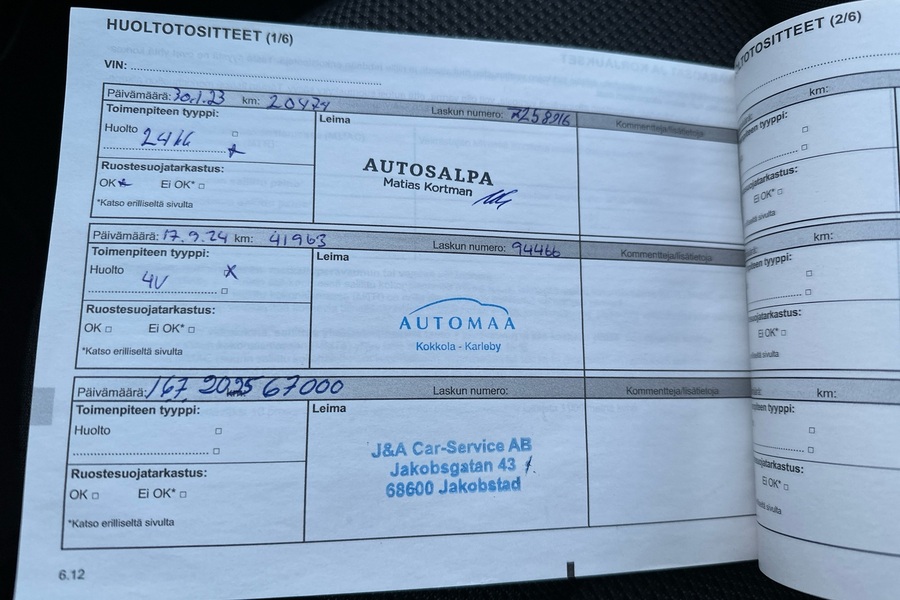 HUOLTOTOSITTEET (1/6)
VIN:
Päivämäärä: 30.1.23 km: 20474 Laskun numero:
Toimenpiteen tyyppi: Leima Kommentteja/lisätietoja
Huolto
24kk
Ruostesuojatarkastus:
OK Ei OK*
*Katso erilliseltä sivulta
AUTOSALPA
Matias Kortman
Päivämäärä: 17.9.24 km: 41963 Laskun numero: 94466
Toimenpiteen tyyppi: Leima Kommentteja/lisätietoja
Huolto
4V
Ruostesuojatarkastus:
OK Ei OK*
*Katso erilliseltä sivulta
AUTOMAA
Kokkola - Karleby
Päivämäärä: 167 2025 67000 Laskun numero:
Toimenpiteen tyyppi: Leima Kommentteja/lisätietoja
Huolto
Ruostesuojatarkastus:
OK Ei OK*
*Katso erilliseltä sivulta
J&A Car-Service AB
Jakobsgatan 43
68600 Jakobstad
6.12
TOTOSITTEET (2/6)
km:
tyyppi:
Ei OK*
sivulta
km:
tyyppi:
Ei OK*
sivulta
km:
tyyppi:
Ei OK*
sivulta